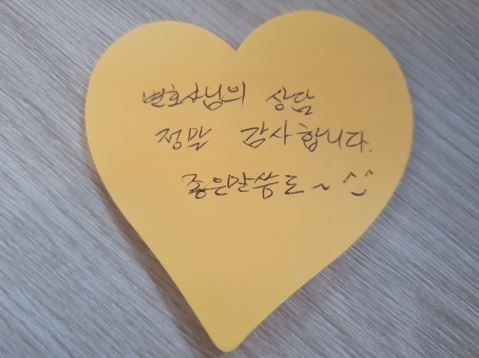 변호사님의 상담
정말 감사합니다.
좋은말씀도~ ^^